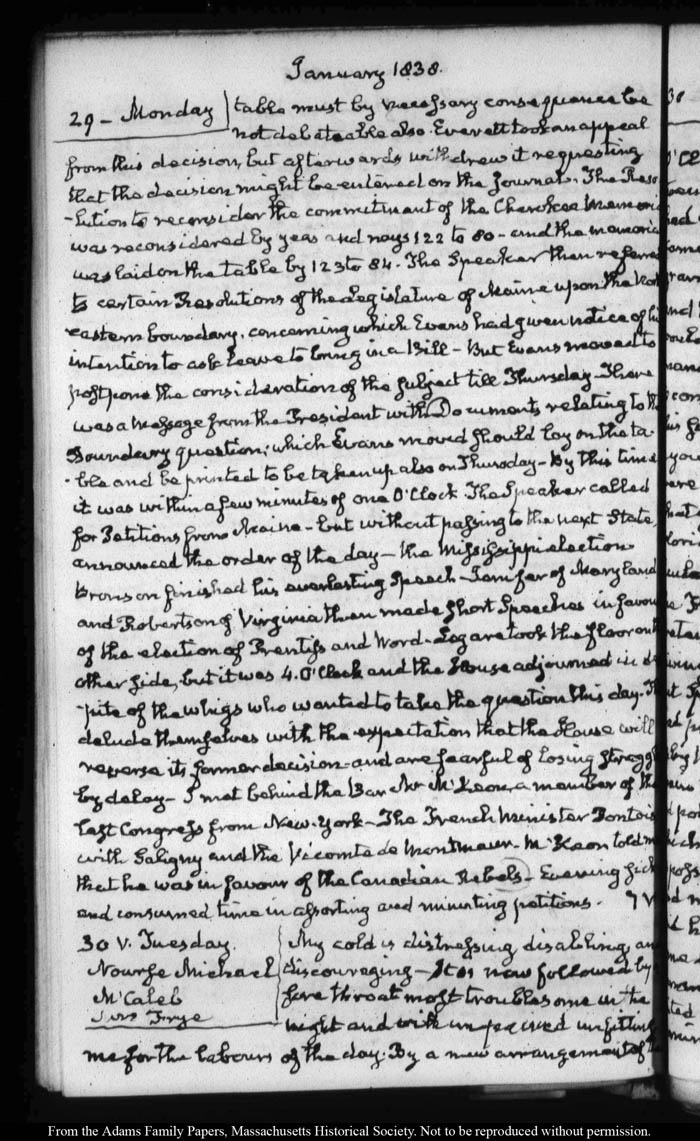 January 1838.
29 – Monday table must by necessary consequence be
not debateable also. Everett took an appeal
from this decision, but afterwards withdrew it requesting
that the decision might be entered on the Journal. The Reso
-lution to reconsider the commitment of the Cherokee memori
was reconsidered by yeas and nays 122 to 80 – and the memoria
was laid on the table by 123 to 84. The Speaker then referred
to certain Resolutions of the Legislature of Maine upon the Nor
eastern boundary, concerning which Evans had given notice of hi
intention to ask leave to bring in a Bill – But Evans moved to
postpone the consideration of the subject till Thursday – There
was a Message from the President with Documents relating to th
Boundary question, which Evans moved should lay on the ta-
-ble and be printed to be taken up also on Thursday – By this time
it was within a few minutes of one O'Clock. The Speaker called
for Petitions from Maine – but without passing to the next State,
announced the order of the day – the Mississippi election
Bronson finished his everlasting Speech – Jenifer of Maryland
and Robertson of Virginia then made short Speeches in favour
of the election of Prentiss and Word – Legare took the floor on th
other side, but it was 4. O'Clock and the House adjourned in des
-pite of the whigs who wanted to take the question this day. Th
delude themselves with the expectation that the House will
reverse its former decision – and are fearful of losing
by delay – I met behind the Bar Mr. McKeon, a member of the
last Congress from New-York – The French Minister Pontois
with Saligny and the Vicomte de Montmaur – McKeon told m
that he was in favour of the Canadian Rebels – Evening sick
and consumed time in assorting and minuting petitions.
30 V. Tuesday. My cold is distressing, disabling, an
Nourse Michael discouraging – It is now followed by
McCaleb sore throat most troublesome in the
Frye night and with unfitting
me for the labours of the day. By a new arrangement of
From the Adams Family Papers, Massachusetts Historical Society. Not to be reproduced without permission.